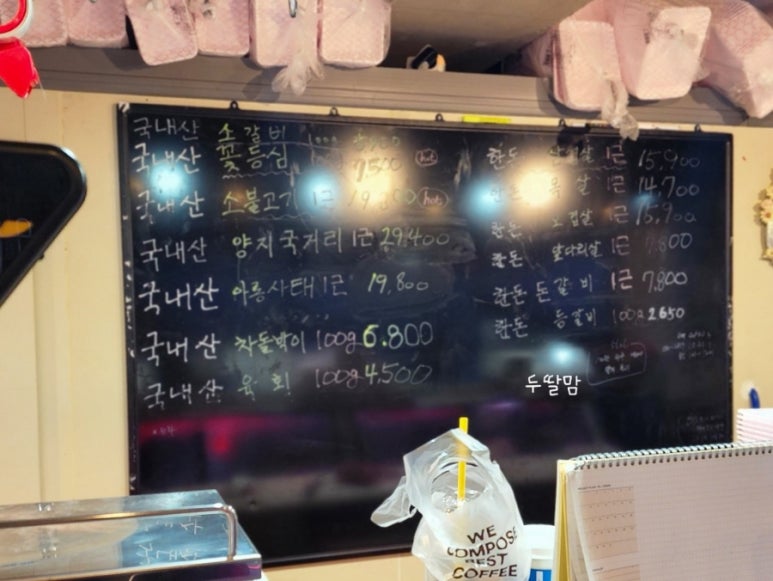 국내산 소갈비 100g
국내산 꽃등심 7,500 hot
국내산 소불고기 1근 hot
국내산 양지국거리 1근 29,400
국내산 아롱사태 1근 19,800
국내산 차돌박이 100g 6.800
국내산 육회 100g 4,500
한돈 1근 15,900
목살 1근 14,700
한돈 오겹살 1근 15,900
한돈 앞다리살 1근 7,800
한돈 돈갈비 1근 7,800
한돈 등갈비 100g 2650
두딸맘
WE
COMPOSE
BEST
COFFEE